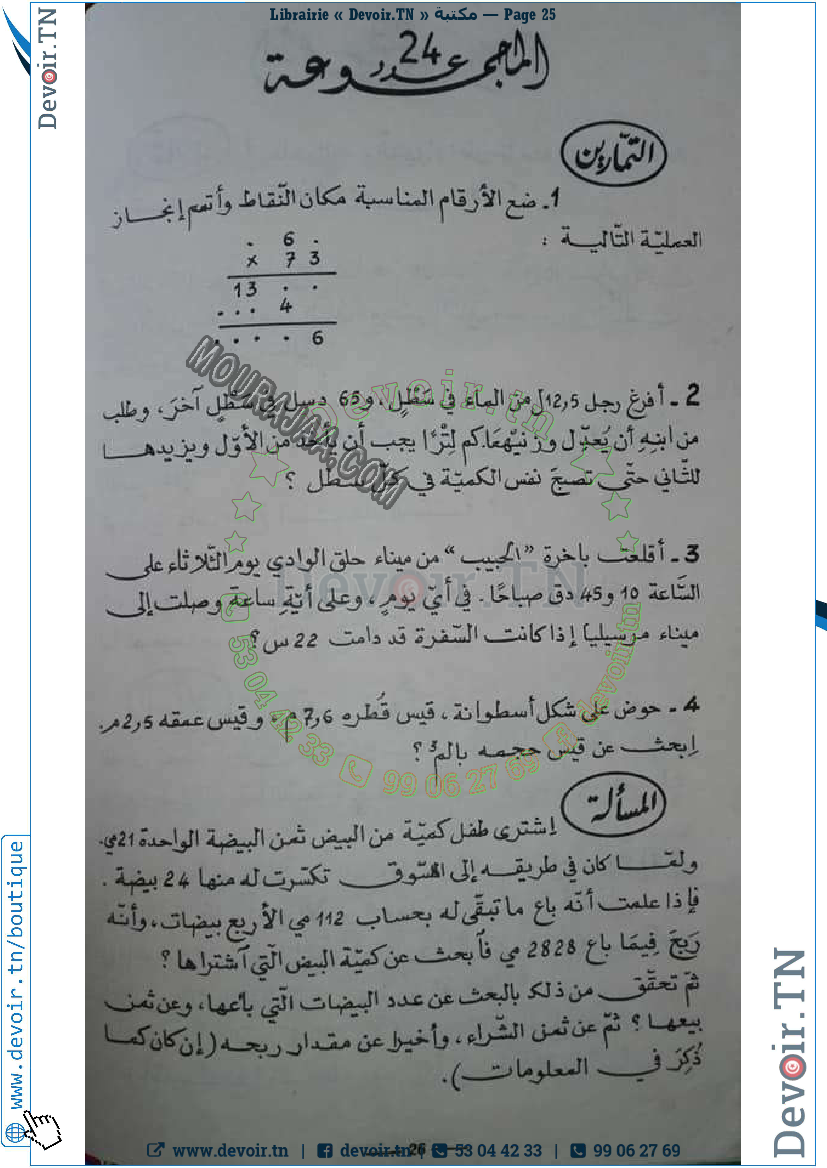 Librairie « Devoir.TN » مكتبة — Page 25
Devoir.TN
المجموعة عدد 24
التمارين
1ـ ضع الأرقام المناسبة مكان النّقاط وأتمم إنجاز
العمليّة التّالية :
. 6 .
× 7 3
13 . .
. . . 4
. . . . 6
2ـ أفرغ رجل 12,5ل من الماء في سَطْلٍ، و65 دسل في سَطْلٍ آخرَ، وطلب
من ابنِهِ أن يُعدّل وزنيْهمَا كم لِتْرًا يجب أن يأخذ من الأوّل ويزيدها
للثّاني حتّى تصبحَ نفس الكميّة في كلّ سطل ؟
MOURAJAA.COM
Devoir.tn
3ـ أقلعت باخرة "الحبيب" من ميناء حلق الوادي يوم الثّلاثاء على
Devoir.TN
السَّاعة 10 و45 دق صباحًا. في أيّ يومٍ، وعلى أيّةِ ساعة وصلت إلى
ميناء مرسيليا إذا كانت السّفرة قد دامت 22 س ؟
53 04 42 33
devoir.tn
4ـ حوض على شكل أسطوانة، قيس قُطره 7,6 م، وقيس عمقه 2,5 م.
إبحث عن قيس حجمه بالم³ ؟
99 06 27 69
المسألة
إشترى طفل كميّة من البيض ثمن البيضة الواحدة 21مي.
ولمّا كان في طريقه إلى السّوق تكسّرت له منها 24 بيضة.
فإذا علمت أنّه باع ما تبقّى له بحساب 112 مي الأربع بيضات، وأنّه
رَبِحَ فِيمَا باع 2828 مي فابحث عن كميّة البيض الّتي اشتراها ؟
ثمّ تحقّق من ذلك بالبحث عن عدد البيضات الّتي باعها، وعن ثمن
بيعها ؟ ثمّ عن ثمن الشّراء، وأخيرا عن مقدار ربحه (إن كان كما
ذُكِرَ في المعلومات).
www.devoir.tn/boutique
Devoir.TN
26
www.devoir.tn | devoir.tn | 53 04 42 33 | 99 06 27 69